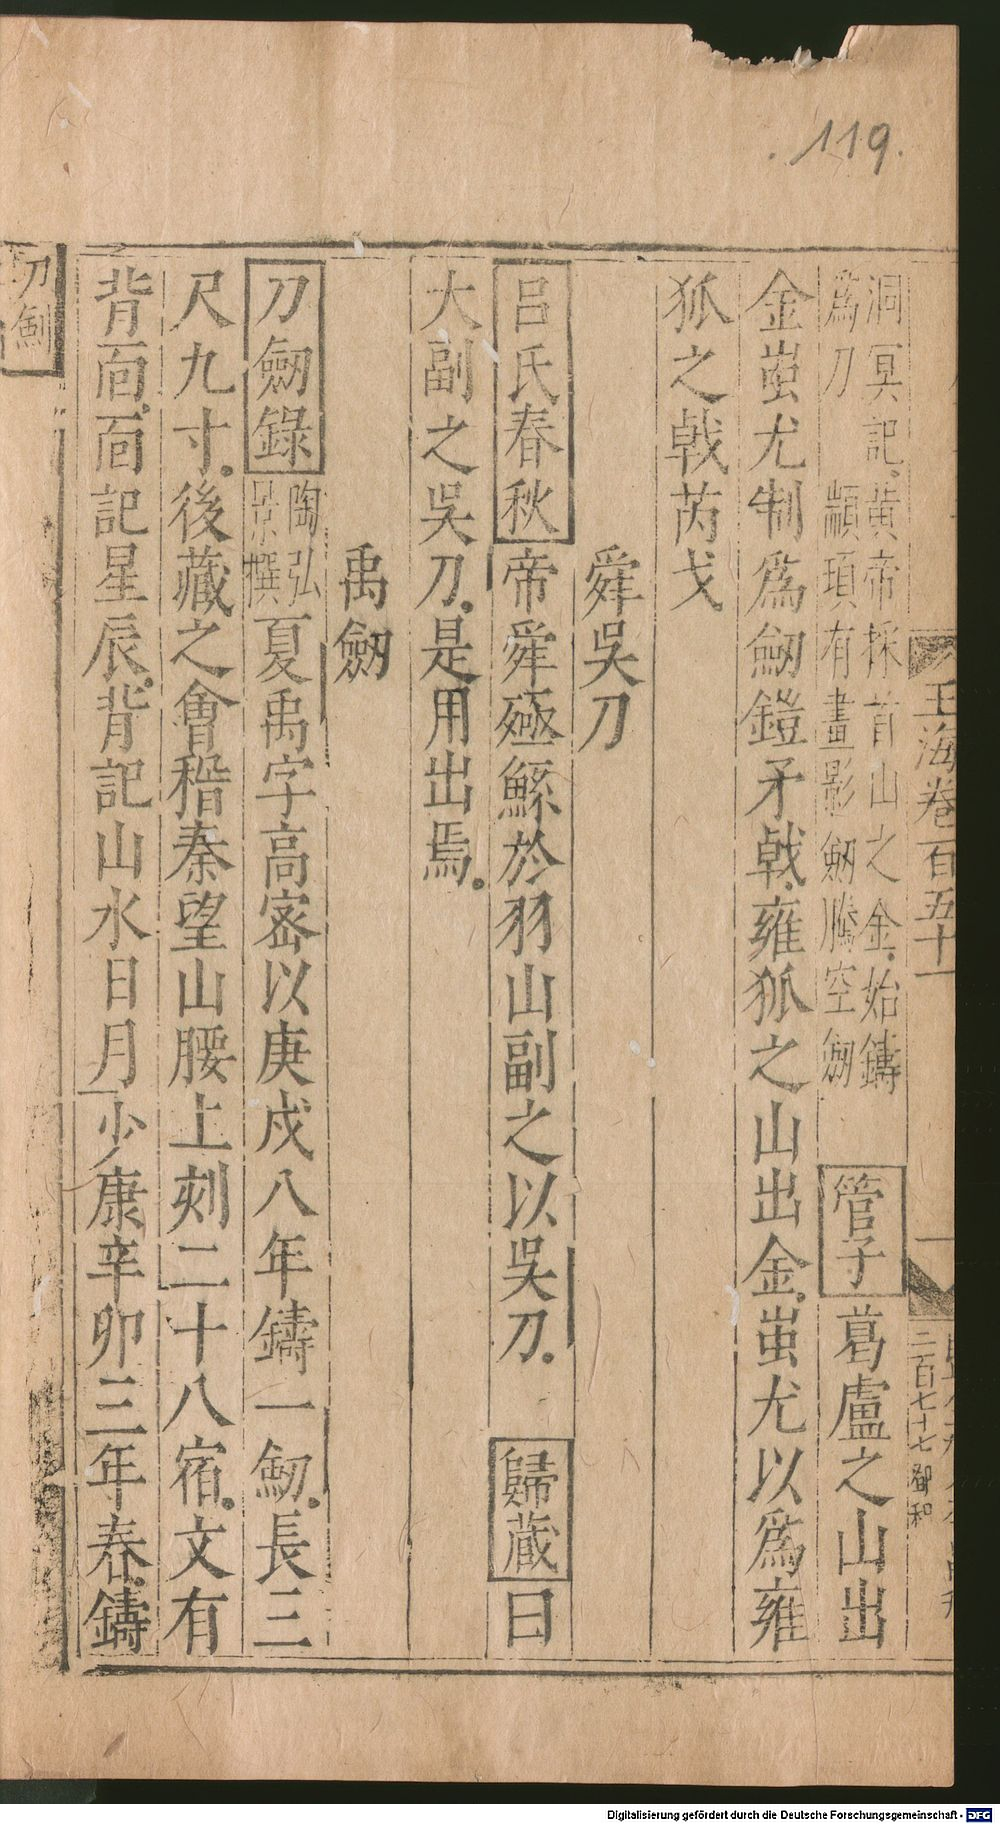 119.
玉海卷百五十一
一
二百七十七
洞冥記黃帝採首山之金始鑄
爲刀 顓頊有畫影劒騰空劒
管子葛盧之山出
金蚩尤制爲劒鎧矛戟雍狐之山出金蚩尤以爲雍
狐之戟芮戈
舜吳刀
呂氏春秋帝舜殛鯀於羽山副之以吳刀 歸藏曰
大副之吳刀是用出焉
禹劒
刀劒錄陶弘景撰夏禹字高密以庚戌八年鑄一劒長三
尺九寸後藏之會稽秦望山腰上刻二十八宿文有
背面面記星辰背記山水日月少康辛卯三年春鑄
刀劒
Digitalisierung gefördert durch die Deutsche Forschungsgemeinschaft - DFG